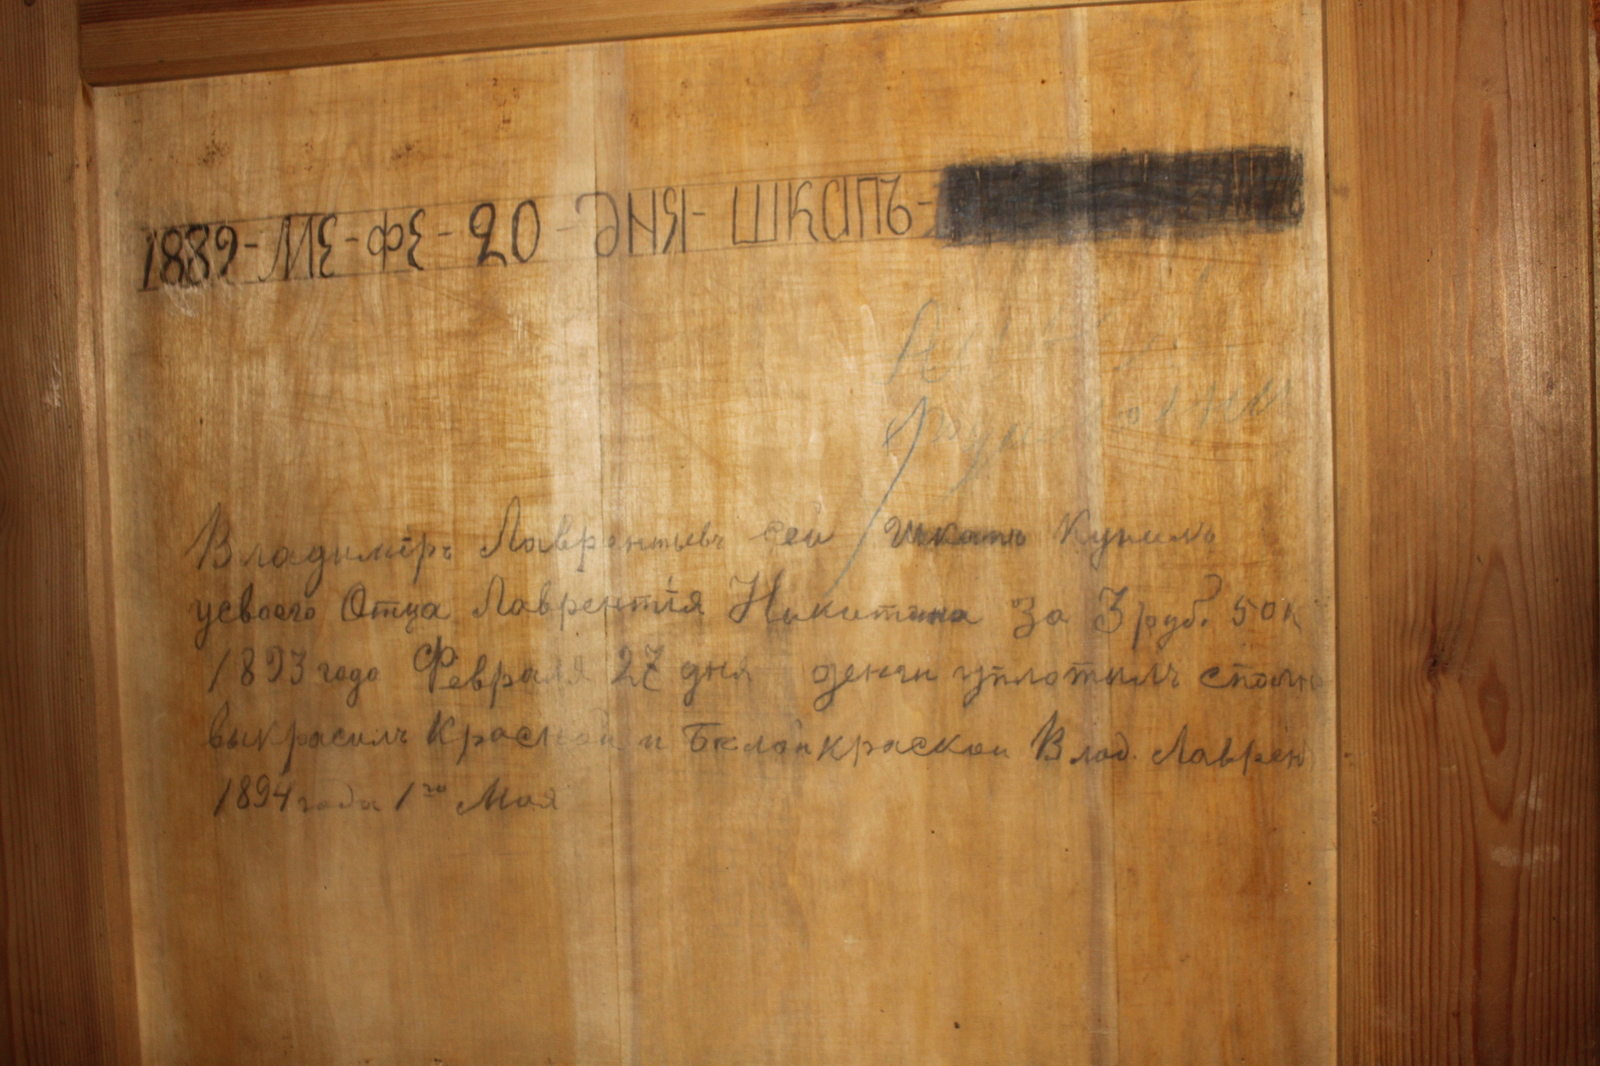 1889-МЕ-ФЕ-20-ДНЯ-ШКАПЪ-
Владимiръ Лаврентьевъ сей шкапъ Купилъ
усвоего Отца Лаврентiя Никитина За 3 руб. 50к
1893 года Февраля 27 дня денги уплотилъ сполн
выкрасилъ Красной и Белойкраской Влад. Лаврен
1894 года 1го Мая